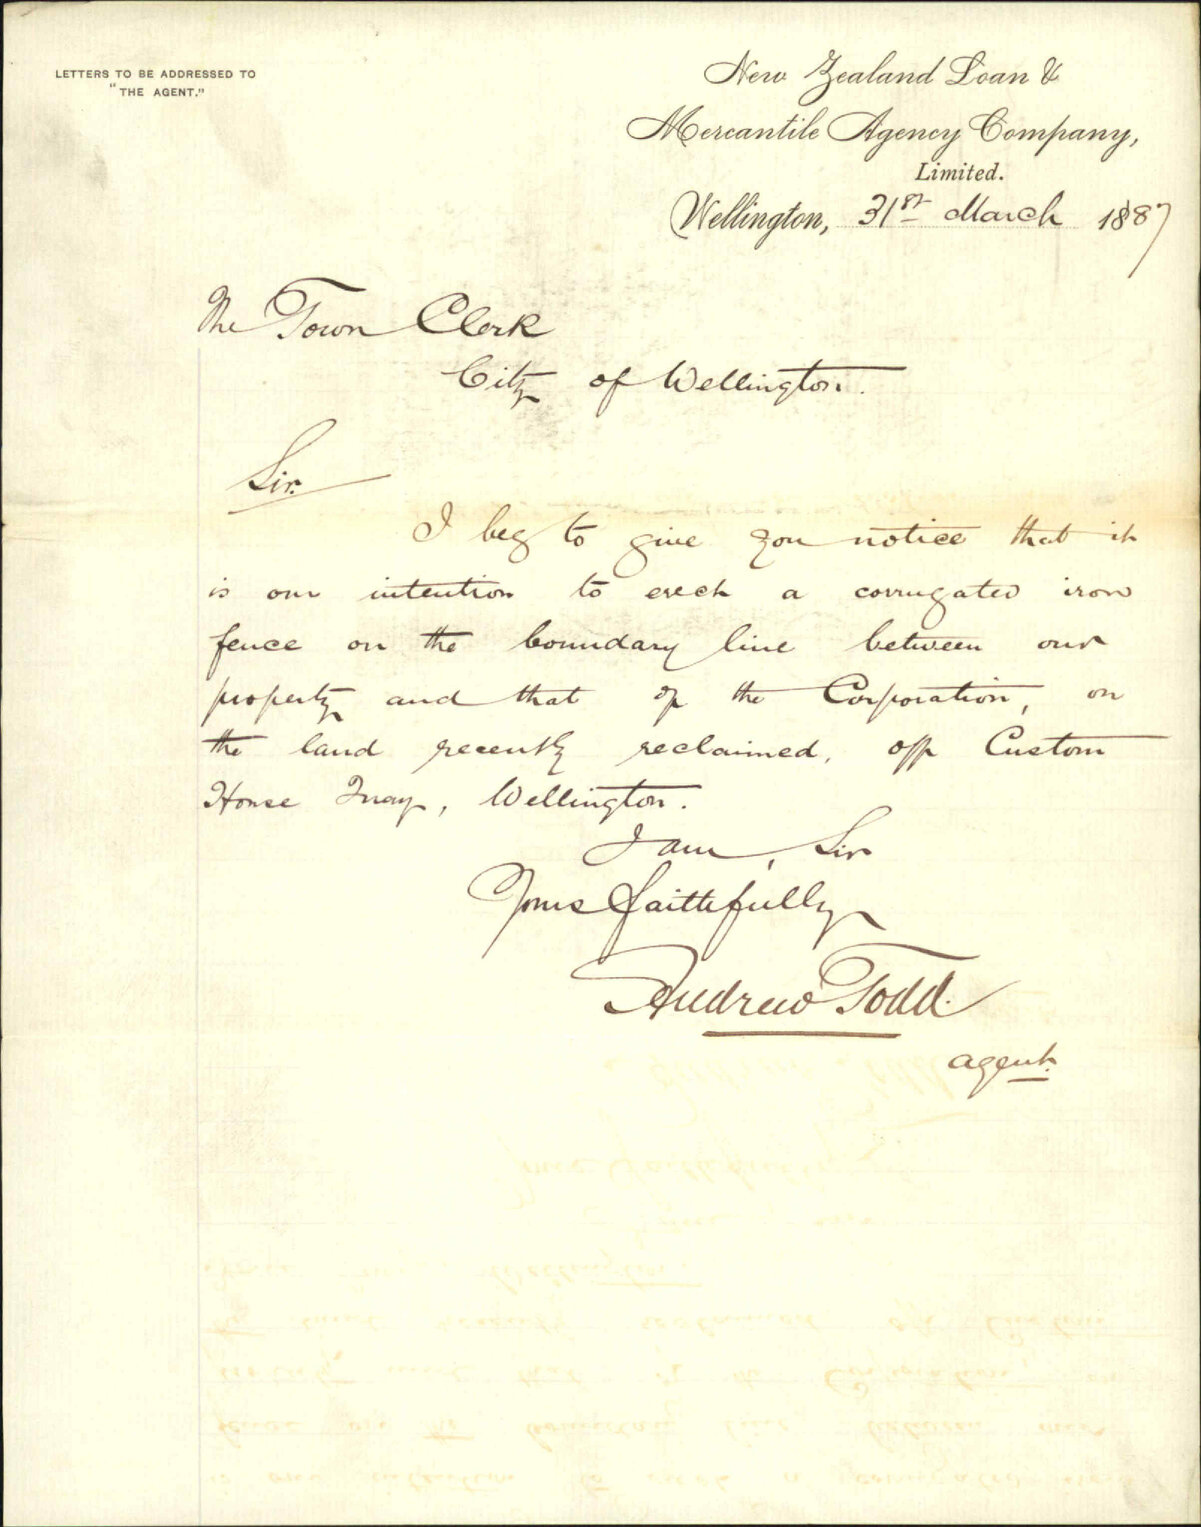 LETTERS TO BE ADDRESSED TO
"THE AGENT."
New Zealand Loan &
Mercantile Agency Company,
Limited.
Wellington, 31st March 1887
The Town Clerk
City of Wellington.
Sir.
I beg to give you notice that it
is our intention to erect a corrugated iron
fence on the boundary line between our
property and that of the Corporation, on
the land recently reclaimed, off Custom
House Quay, Wellington.
I am, Sir
Yours faithfully
Andrew Todd.
agent.